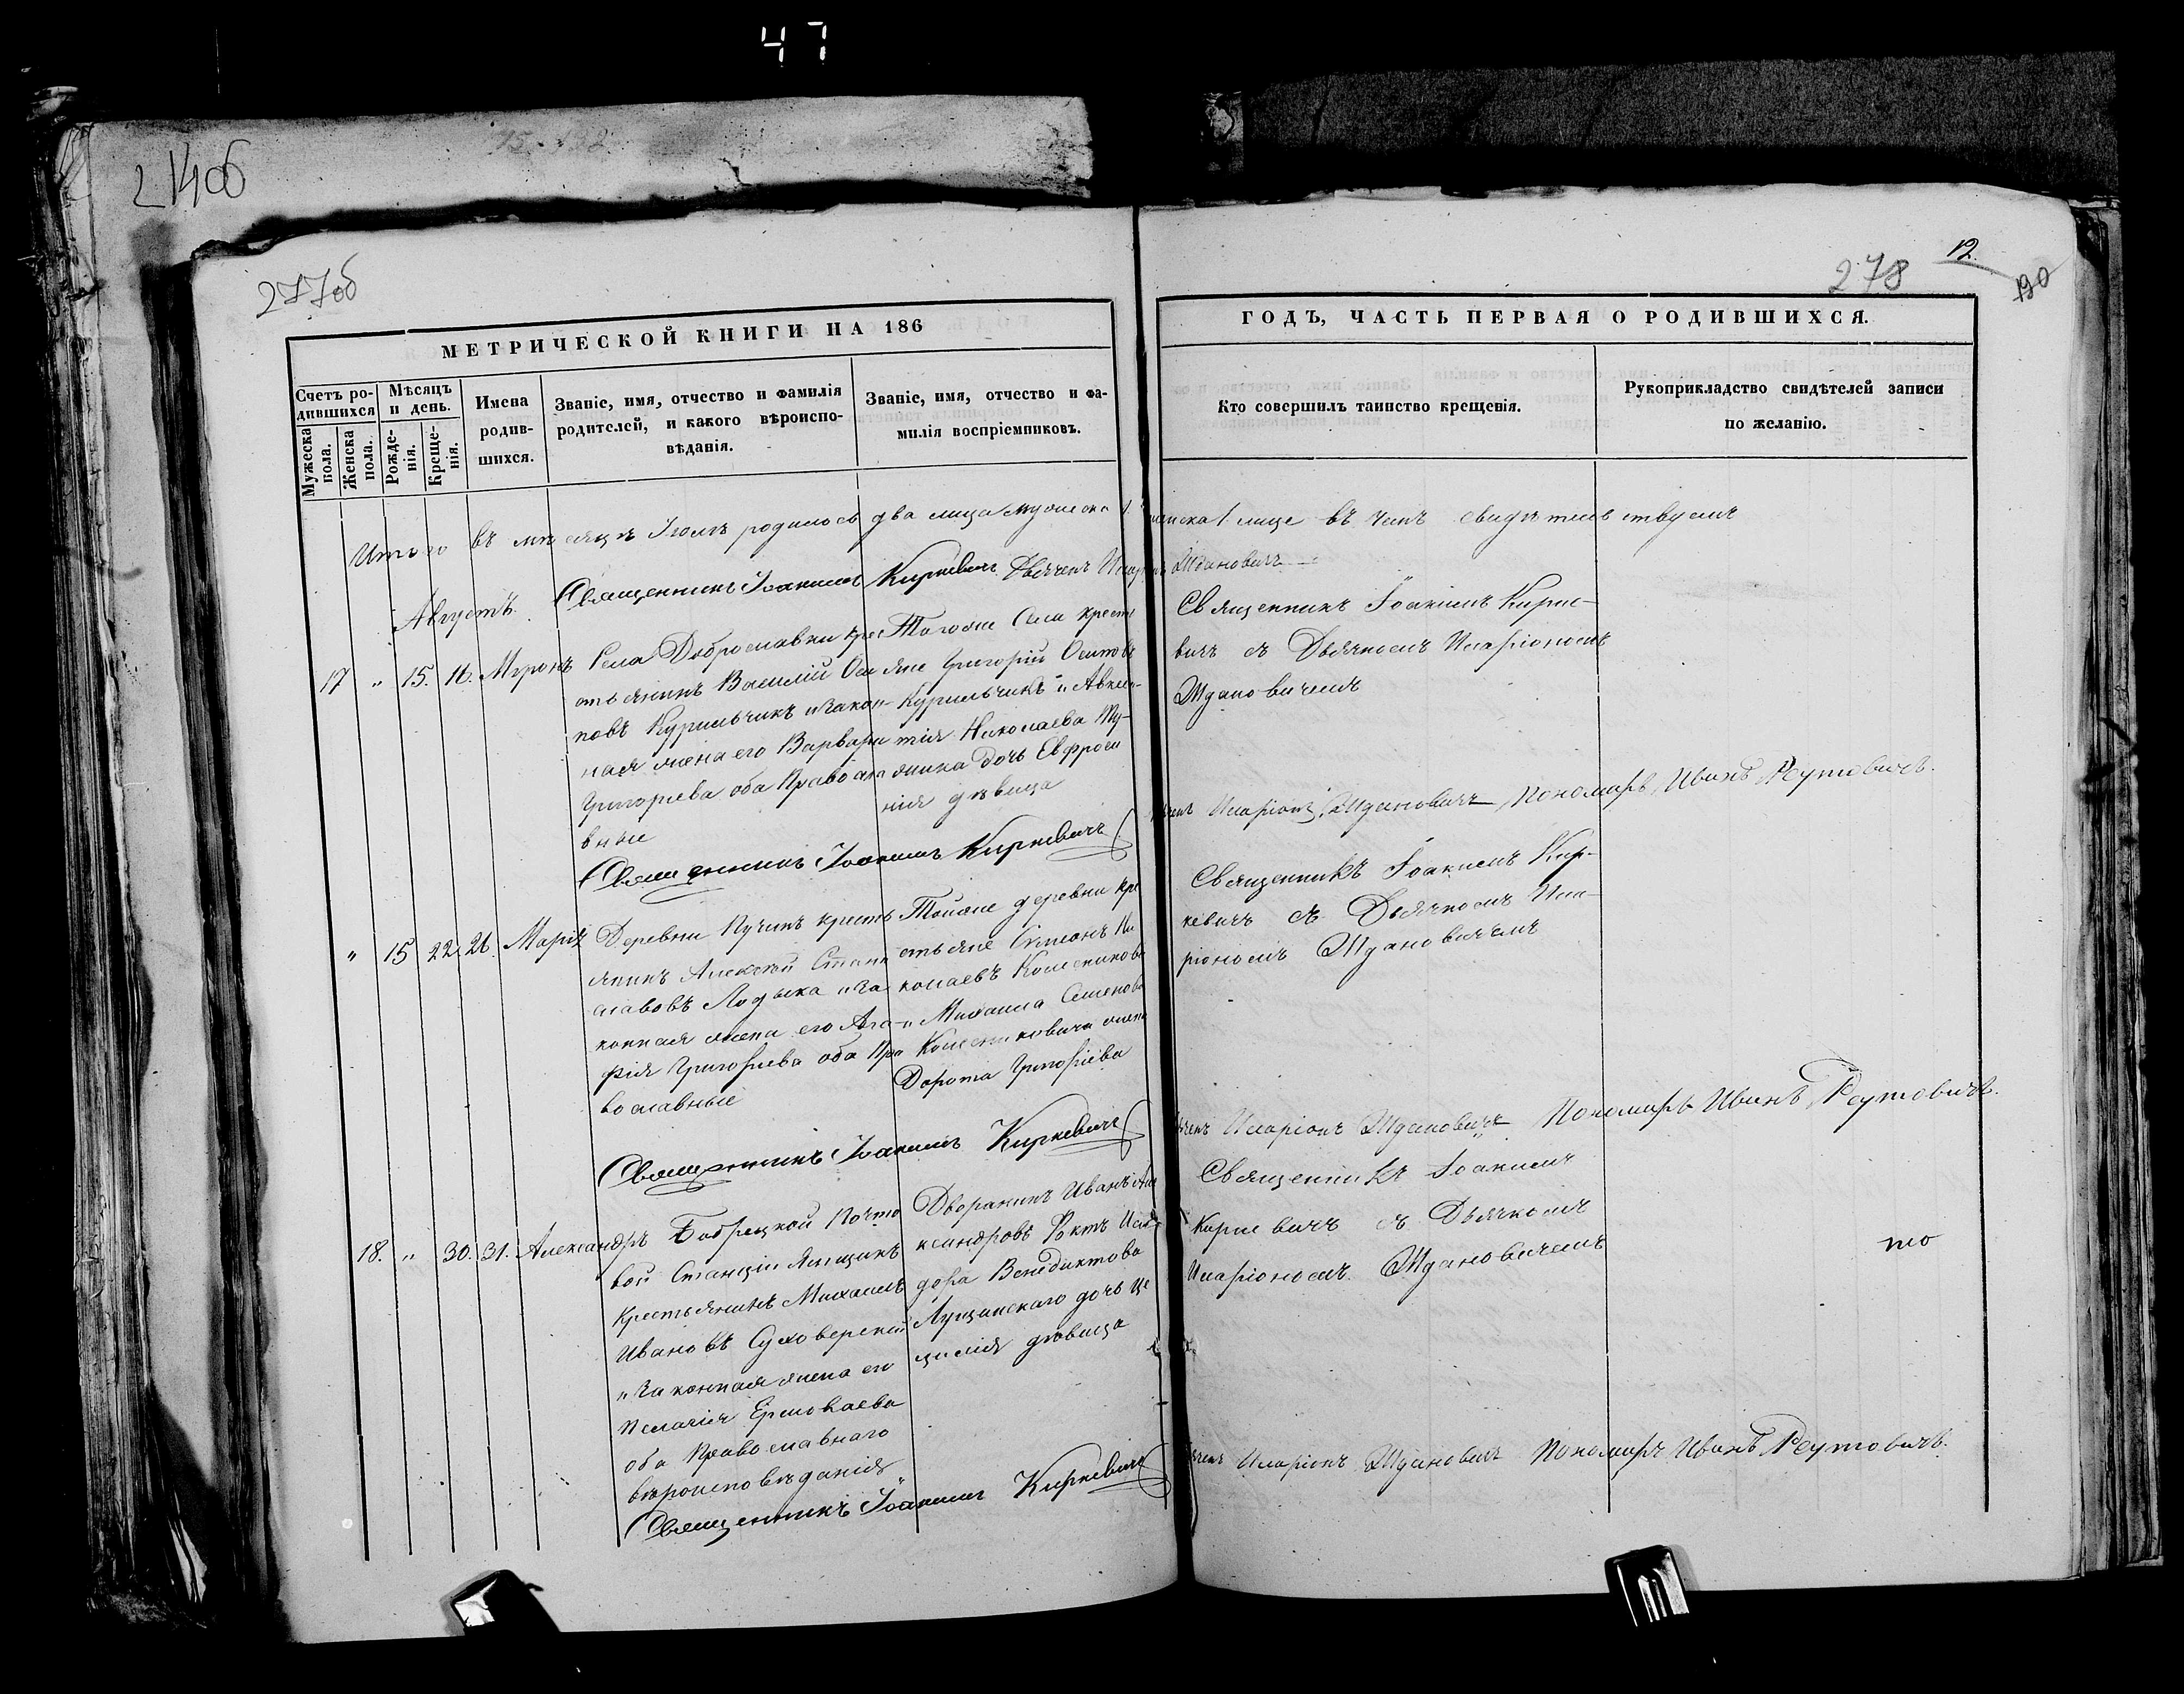 47
214об
277об
278
12
190
МЕТРИЧЕСКОЙ КНИГИ НА 186
Счетъ ро-
дившихся
Мужеска
пола.
Женска
пола.
Мѣсяцъ
и день.
Рожде-
нія.
Креще-
нія.
Имена
родив-
шихся.
Званіе, имя, отчество и фамилія
родителей, и какого вѣроиспо-
вѣданія.
Званіе, имя, отчество и фа-
милія воспріемниковъ.
ГОДЪ, ЧАСТЬ ПЕРВАЯ О РОДИВШИХСЯ.
Кто совершилъ таинство крещенія.
Рукоприкладство свидѣтелей записи
по желанію.
Итого въ мѣсяцѣ родилось два лица мужеска 1. женска 1 лице въ чемъ свидѣтельствуемъ
Священникъ Іоакимъ Киркевичъ Дьячекъ Иларіонъ Ждановичъ
Августъ.
17 " 15. 16. Миронъ
Села Доброславки кре
стьянинъ Василій Оси
повъ Курильчикъ и закон-
ная жена его Варвара
Григорьева оба Правосла
вные
Тогоже Села кресть
яне Григорій Осиповъ
Курильчикъ и Авксен-
тія Николаева
дочь Евфроси
нія дѣвица
Священникъ Іоакимъ Кирке-
вичъ съ Дьячкомъ Иларіономъ
Ждановичемъ
Священникъ Іоакимъ Киркевичъ
Дьячекъ Иларіонъ Ждановичъ Пономарь Иванъ Реутовичъ.
" 15 22. 26. Марія
Деревни Кучинъ кресть
янинъ Алексѣй Стани
славовъ Лодыка и за
конная жена его Ага-
фія Григорьева оба Пра
вославные
Тойже деревни кре
стьяне Симеонъ Ни
колаевъ
и Михаила Семенова
жена
Дорота Григорьева
Священникъ Іоакимъ Кир-
кевичъ съ Дьячкомъ Ила-
ріономъ Ждановичемъ
Священникъ Іоакимъ Киркевичъ
Дьячекъ Иларіонъ Ждановичъ Пономарь Иванъ Реутовичъ.
18. " 30. 31. Александръ
Почто
вой Станціи Ямщикъ
Крестьянинъ Михаилъ
Ивановъ Суховерскій
и законная жена его
Пелагія Ермолаева
оба Православнаго
вѣроисповѣданія
Дворянинъ Иванъ Але
ксандровъ
дора Венедиктова
Лущинскаго дочь Це
цилія дѣвица
Священникъ Іоакимъ
Киркевичъ съ Дьячкомъ
Иларіономъ Ждановичемъ
Священникъ Іоакимъ Киркевичъ
Дьячекъ Иларіонъ Ждановичъ Пономарь Иванъ Реутовичъ.